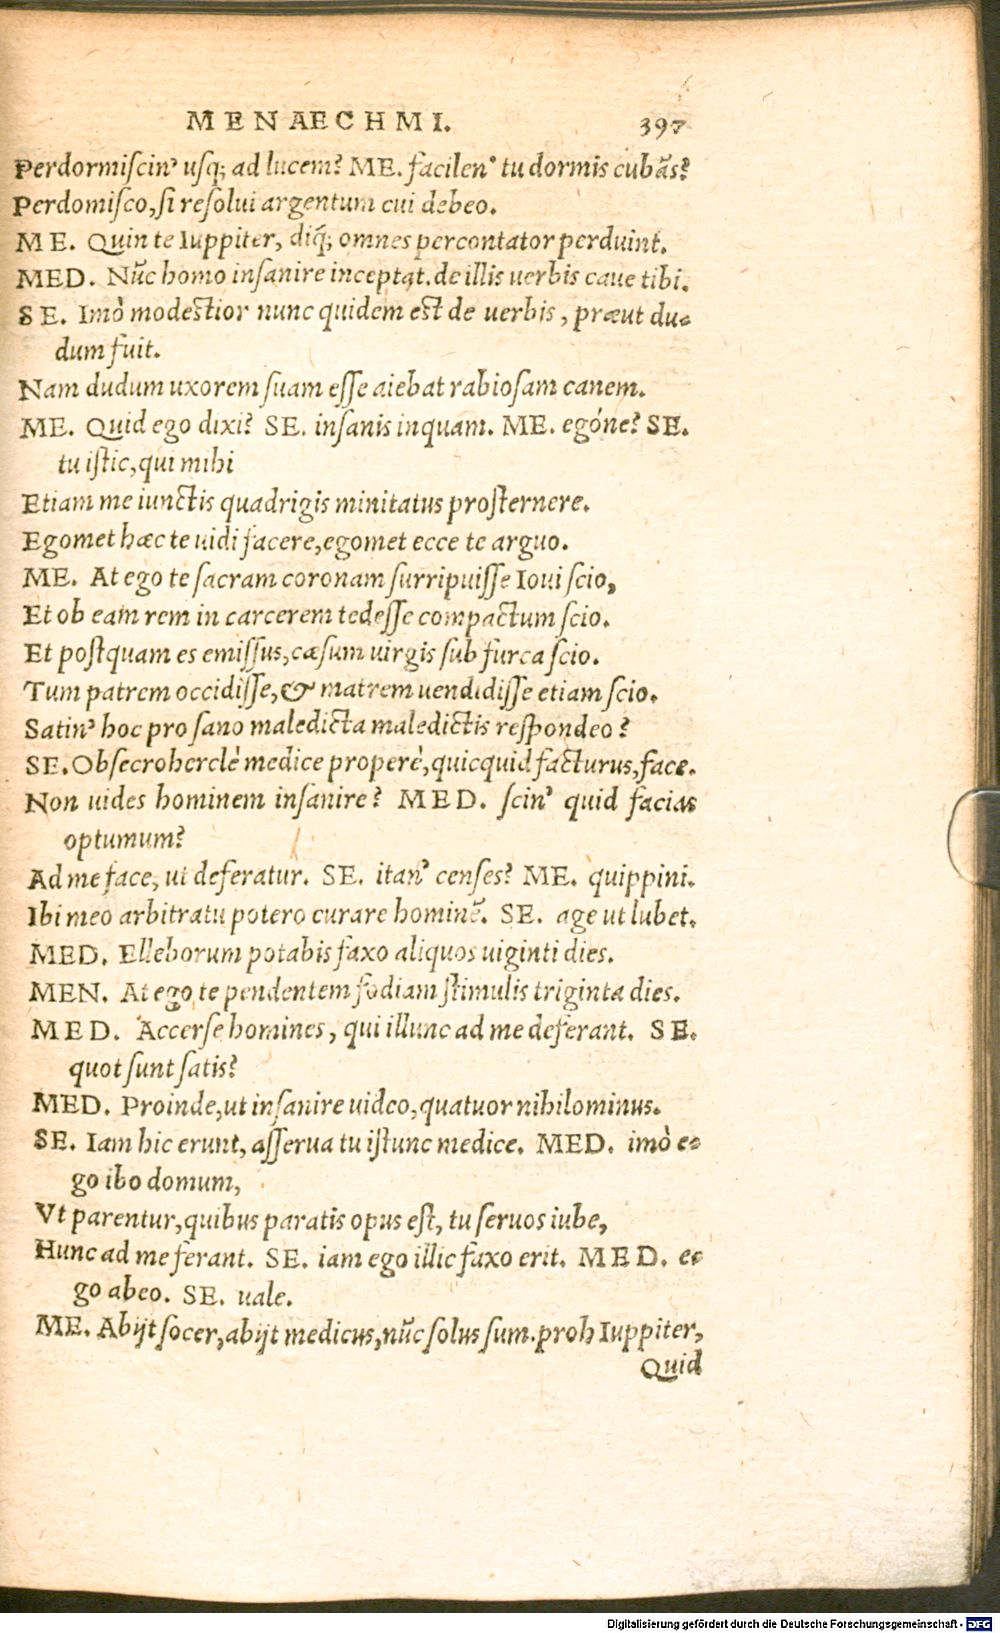 MENAECHMI. 397
Perdormiscin' usq; ad lucem? ME. facilen' tu dormis cubãs?
Perdomisco, si resolui argentum cui debeo.
ME. Quin te Iuppiter, diq́; omnes percontator perduint.
MED. Nũc homo insanire inceptat. de illis uerbis caue tibi.
SE. Imò modestior nunc quidem est de uerbis, præut du-
dum fuit.
Nam dudum uxorem suam esse aiebat rabiosam canem.
ME. Quid ego dixi? SE. insanis inquam. ME. egóne? SE.
tu istic, qui mihi
Etiam me iunctis quadrigis minitatus prosternere.
Egomet hæc te uidi facere, egomet ecce te arguo.
ME. At ego te sacram coronam surripuisse Ioui scio,
Et ob eam rem in carcerem tedesse compactum scio.
Et postquam es emissus, cæsum uirgis sub furca scio.
Tum patrem occidisse, & matrem uendidisse etiam scio.
Satin' hoc pro sano maledicta maledictis respondeo?
SE. Obsecro herclè medice properè, quicquid facturus, face.
Non uides hominem insanire? MED. scin' quid facias
optumum?
Ad me face, ut deferatur. SE. itan' censes? ME. quippini.
Ibi meo arbitratu potero curare hominẽ. SE. age ut lubet.
MED. Elleborum potabis faxo aliquos uiginti dies.
MEN. At ego te pendentem fodiam stimulis triginta dies.
MED. Accerse homines, qui illunc ad me deferant. SE.
quot sunt satis?
MED. Proinde, ut insanire uideo, quatuor nihilominus.
SE. Iam hic erunt, asserua tu istunc medice. MED. imò e-
go ibo domum,
Vt parentur, quibus paratis opus est, tu seruos iube,
Hunc ad me ferant. SE. iam ego illic faxo erit. MED. e-
go abeo. SE. uale.
ME. Abijt socer, abijt medicus, nũc solus sum. proh Iuppiter,
Quid
Digitalisierung gefördert durch die Deutsche Forschungsgemeinschaft - DFG